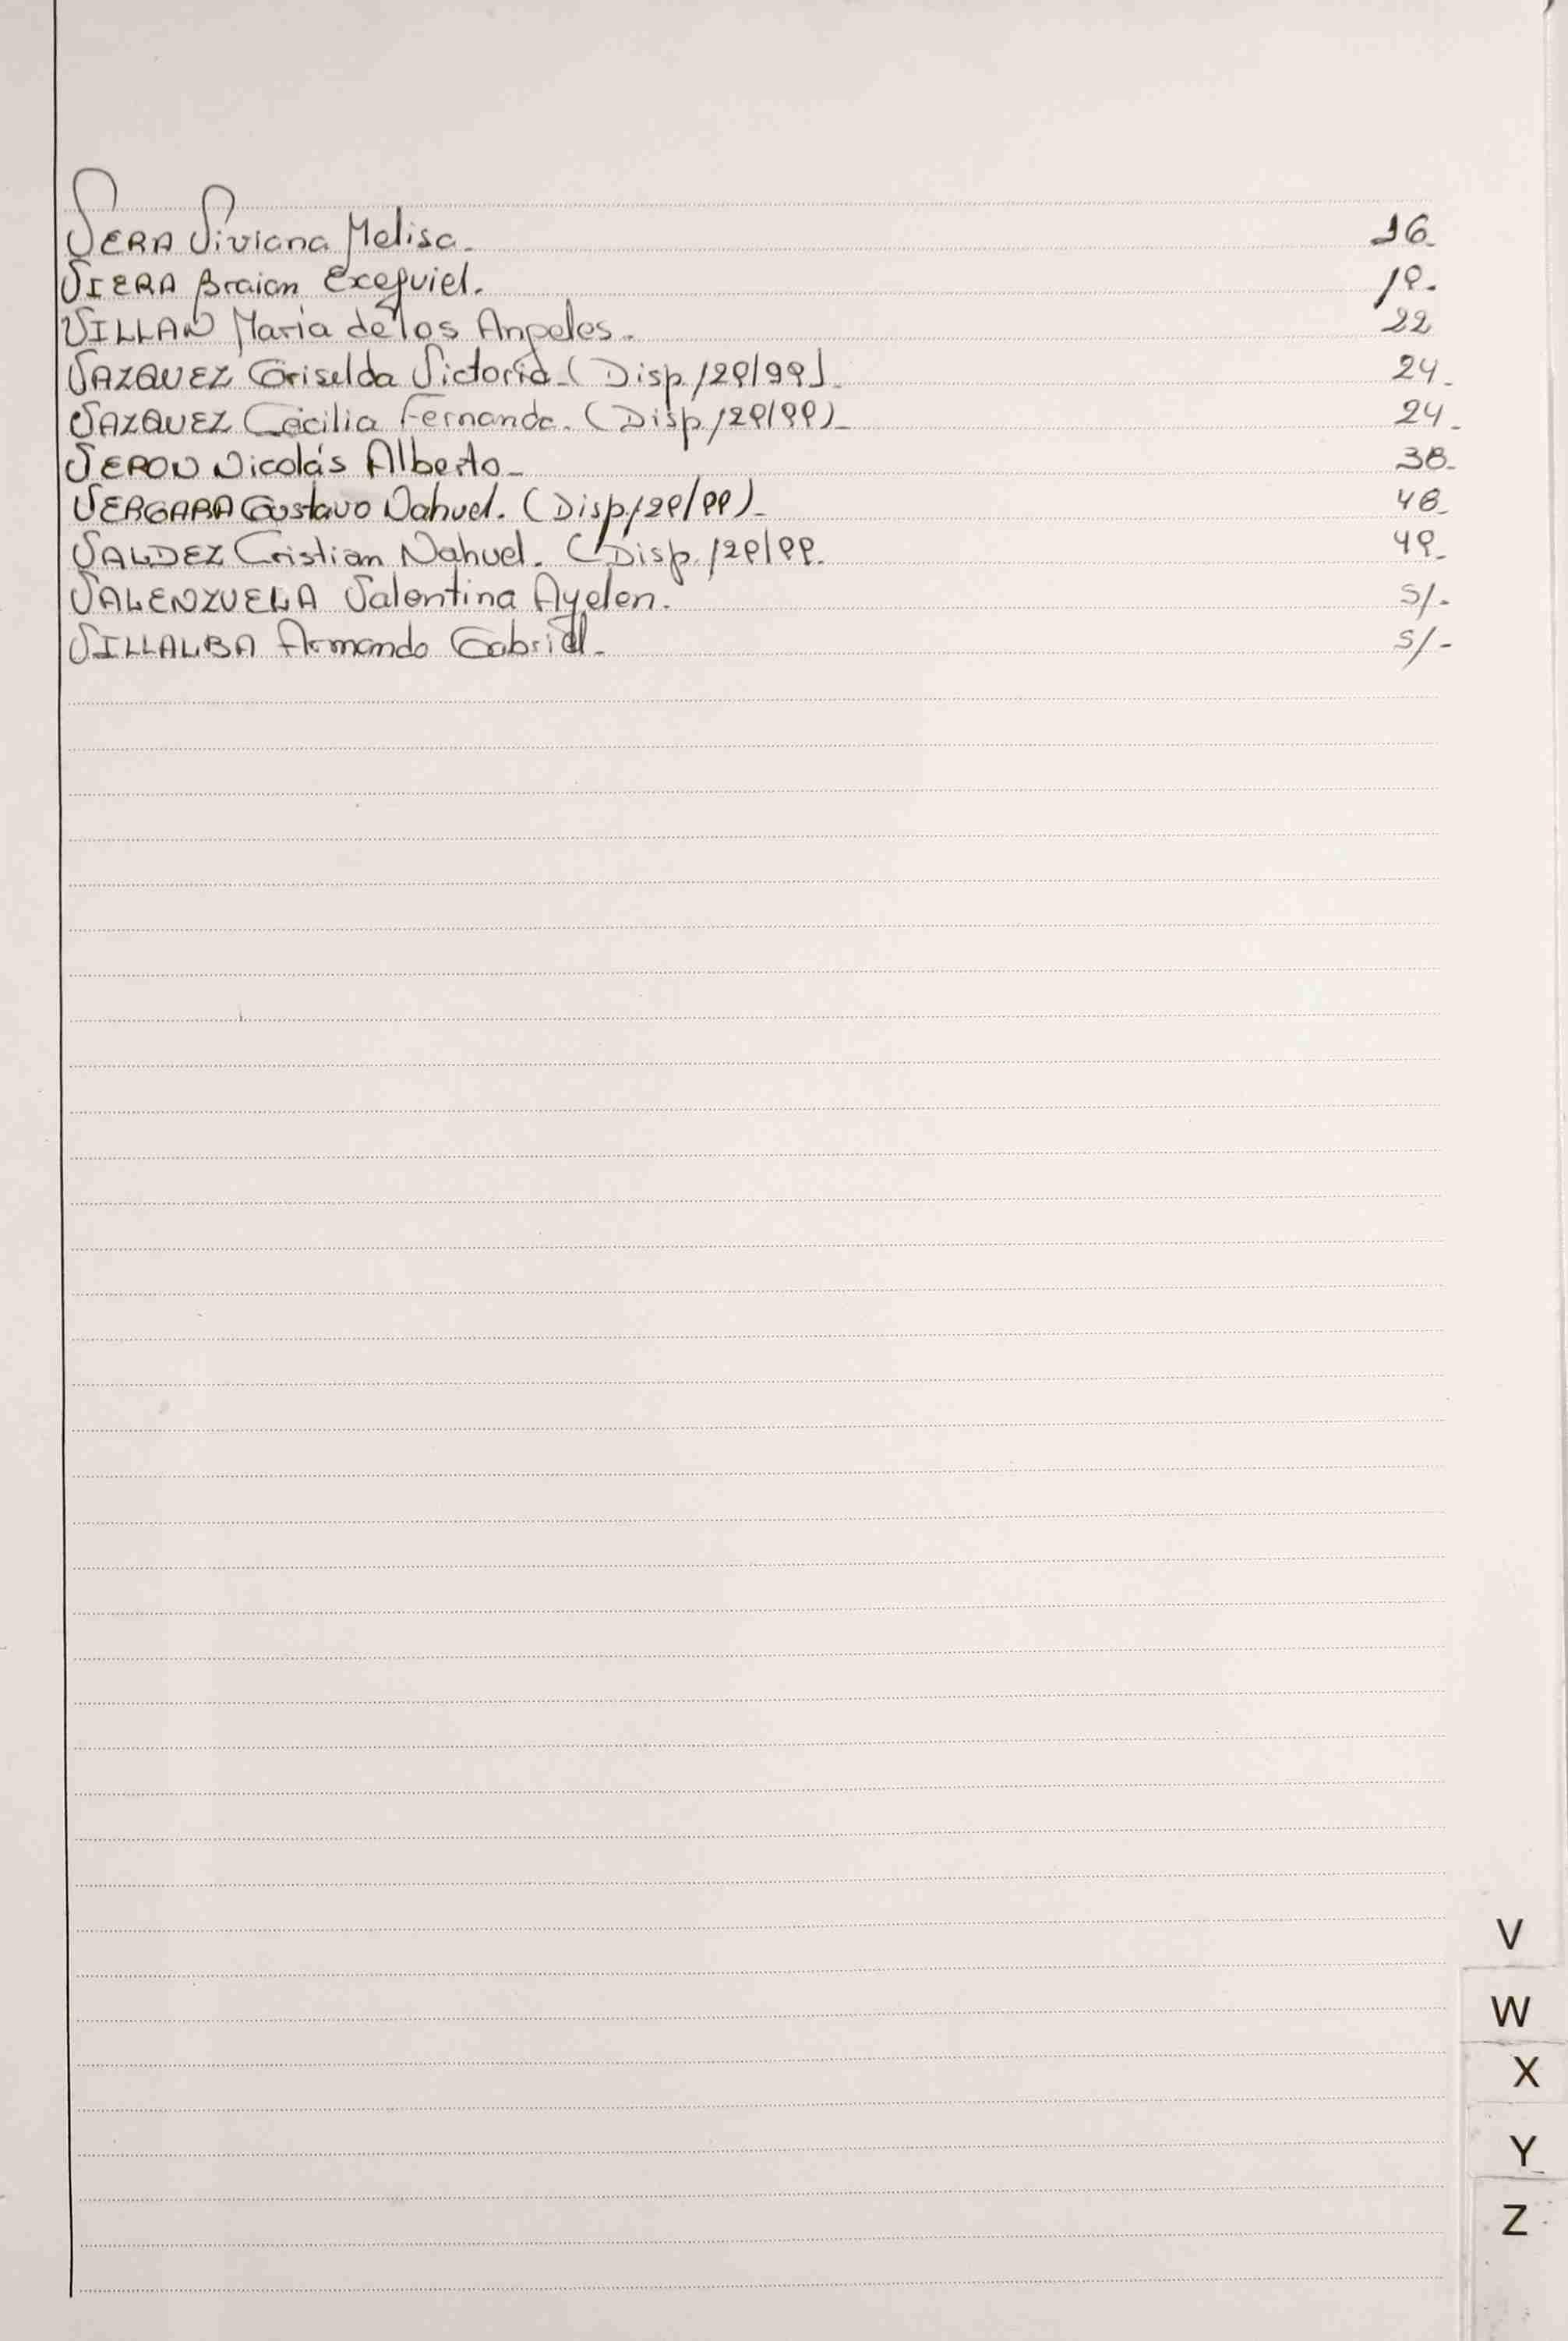 VERA Viviana Melisa. 16.
VIERA Braian Exequiel. 19.
VILLAN María de los Angeles. 22
VAZQUEZ Griselda Victoria. (Disp. 129/99). 24.
VAZQUEZ Cecilia Fernanda. (Disp. 129/99). 24.
VERON Nicolás Alberto. 38.
VERGARA Gustavo Nahuel. (Disp. 129/99). 48.
VALDEZ Cristian Nahuel. (Disp. 129/99. 49.
VALENZUELA Valentina Ayelen. S/.
VILLALBA Armando Gabriel. S/-
V
W
X
Y
Z